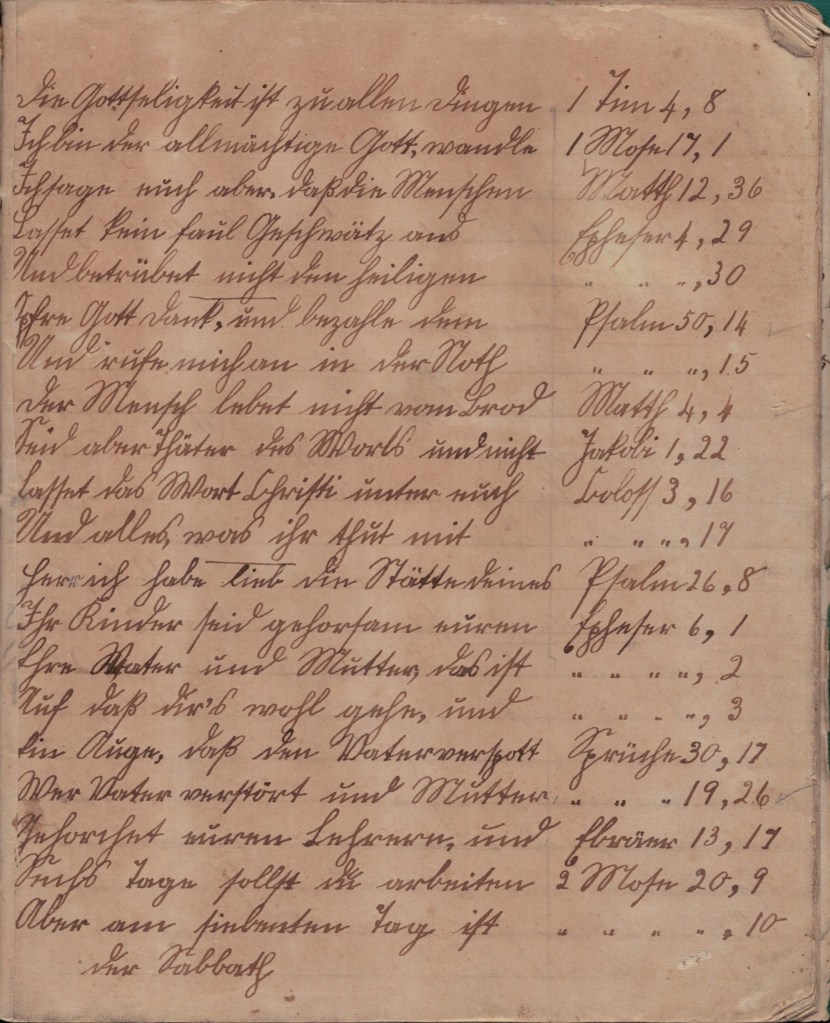 Die Gottseligkeit ist zu allen Dingen 1 Tim 4, 8
Ich bin der allmächtige Gott, wandle 1 Mose 17, 1
Ich sage euch aber, daß die Menschen Matth 12, 36
Lasset kein faul Geschwätz aus Epheser 4, 29
Und betrübet nicht den heiligen " " ", 30
Opfre Gott Dank, und bezahle dem Psalm 50, 14
Und rufe mich an in der Noth " " ", 15
Der Mensch lebet nicht vom Brod Matth 4, 4
Seid aber Thäter des Worts und nicht Jakobi 1, 22
Lasset das Wort Christi unter euch Coloss 3, 16
Und alles, was ihr thut mit " " " , 17
Herr ich habe lieb die Stätte deines Psalm 26, 8
Ihr Kinder seid gehorsam euren Epheser 6, 1
Ehre Vater und Mutter, das ist " " " ", 2
Auf daß dir's wohl gehe, und " " " ", 3
Ein Auge, daß den Vater verspott Sprüche 30, 17
Wer Vater verstört und Mutter " " " 19, 26
Gehorchet euren Lehrern, und Ebräer 13, 17
Sechs Tage sollst du arbeiten 2 Mose 20, 9
Aber am siebenten Tag ist " " " " , 10
der Sabbath